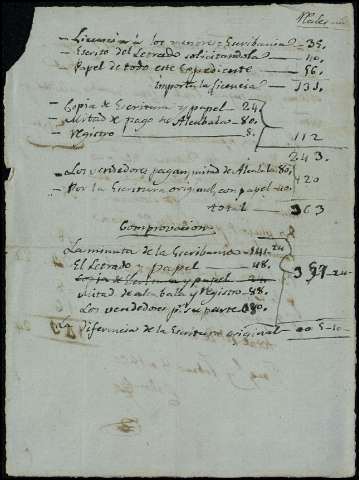 Reales
- Licencia á los menores Escribania - 35.
- Escrito del Letrado solicitandola - 40.
- Papel de todo este Expediente - 56.
Importa la licencia - 131.
- Copia de Escritura y papel - 24
- Mitad de pago de Alcabala - 80.
- Registro - 8.
112
243.
- Los vendedores pagan mitad de Alcabala 80.
- Por la Escritura original, con papel - 40.
120
total - 363
Comprovacion
La minuta de la Escribania - 141. 24
El Letrado y papel - 48.
Copia de Escritura y papel - 24
Mitad de alcabala y Registro - 88.
Los vendedores pr. su parte - 80.
357-24-
La diferencia de la Escritura original - 5-10